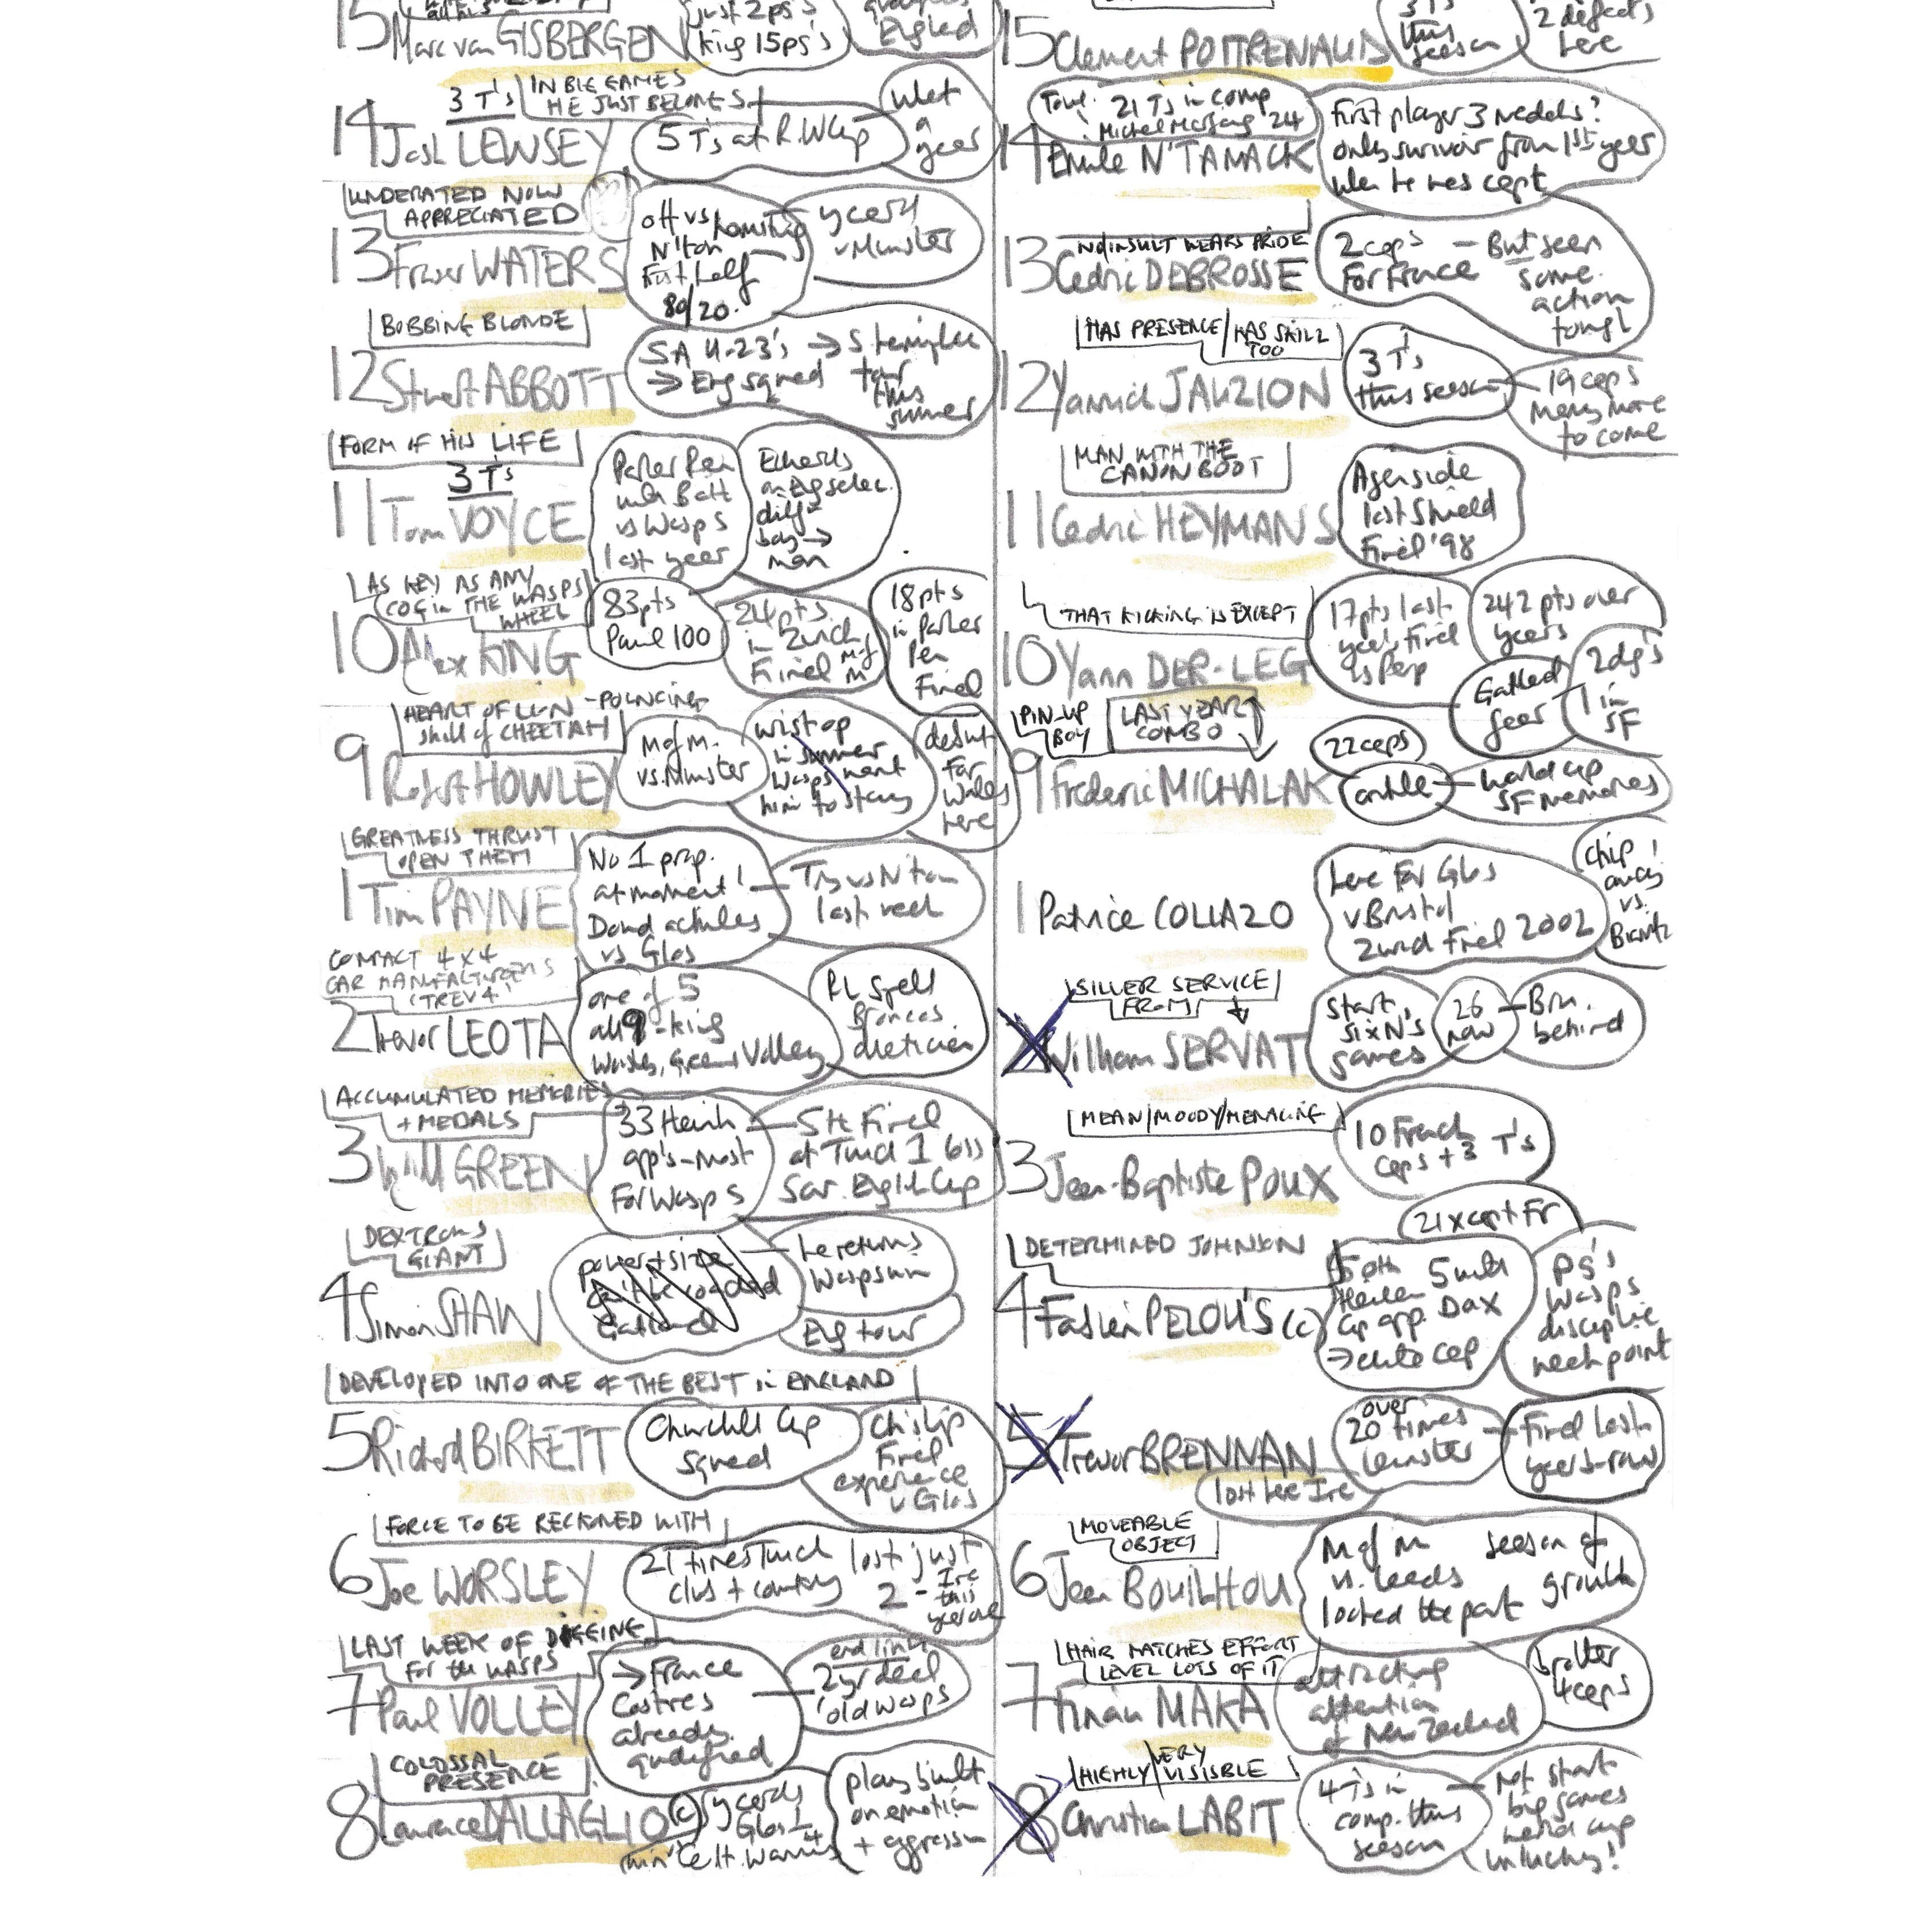 15 Marc van GISBERGEN
just 2 ps's
king 15ps's
England
3 T's
IN BIG GAMES
HE JUST BELONGS
14 Josh LEWSEY
5 T's at R.W Cup
what
a
year
UNDERATED NOW
APPRECIATED
13 Fraser WATERS
off vs hamstring
N'ton
First half
80/20.
ycard
v Munster
BOBBING BLONDE
12 Stuart ABBOTT
SA U-23's → S Hemisphere
→ Eng squad tour
this
summer
FORM OF HIS LIFE
3 T's
11 Tom VOYCE
Parker Pen
with Bath
vs Wasps
last year
Edwards
on Eng selec.
diff
boy →
man
AS KEY AS ANY
COG in THE WASPS
WHEEL
10 Alex KING
83pts
Paul 100
24 pts
in Zurich
Final Mof
M
18pts
in Parker
Pen
Final
HEART OF LION - POUNCING
skill of CHEETAH
9 Robert HOWLEY
M of M.
vs. Munster
wrist op
in summer
Wasps want
him to stay
debut
for
Wales
here
GREATNESS THRUST
UPON THEM
1 Tim PAYNE
No 1 prop.
at moment!
Dowd achilles
vs Glos
Try vs N'ton
last week
COMPACT 4 x 4
CAR MANUFACTURERS
'TREV 4'
2 Trevor LEOTA
one of 5
all 9-king
Wasties, Green, Volley
RL spell
Broncos
dietician
ACCUMULATED MEMORIES
+ MEDALS
3 Will GREEN
33 Hein
app's - most
For Wasps
5th Final
at Twick 1 loss
Sar. English Cup
DEXTROUS
GIANT
4 Simon SHAW
power + size
he returns
Wasps win
Eng tour
DEVELOPED INTO ONE OF THE BEST in ENGLAND
5 Richard BIRKETT
Churchill Cup
squad
Ch'ship
Final
experience
v Glos
FORCE TO BE RECKONED WITH
6 Joe WORSLEY
21 times Twick lost just
club + country 2 - Ire
this
year one
LAST WEEK OF DIGGING
for the WASPS
7 Paul VOLLEY
→ France
Castres
already
qualified
end link
2yr deal
'old wasps
COLOSSAL
PRESENCE
8 Lawrence DALLAGLIO (c)
ycards
Glos 1
Celt. Warriors 4
plays built
on emotion
+ aggression
15 Clement POITRENAUD
3 T's
this
season
2 defeats
here
Toul. 21 T's in comp
Michel Marfaing '24
14 Emile N'TAMACK
First player 3 medals?
only survivor from 1st year
when he was capt
NO INSULT WEARS PRIDE
13 Cedric DEBROSSE
2 caps - But seen
For France some
action
tough
HAS PRESENCE / HAS SKILL
TOO
12 Yannick JAUZION
3 T's
this season
19 caps
many more
to come
MAN WITH THE
CANON BOOT
11 Cedric HEYMANS
Agen side
lost Shield
Final '98
THAT KICKING IS EXCEPT
10 Yann DER-LEG
17pts last
year's Final
vs Perp
242 pts over
years
Gatland
fear
2dg's
1 in
SF
PIN-UP
BOY
LAST YEAR
COMBO
9 Frederic MICHALAK
22 caps
ankle
world cup
SF memories
1 Patrice COLLAZO
here For Glos
v Bristol
Zurich Final 2002
chip
away
vs.
Biarritz
SILLER SERVICE
FROM
2 William SERVAT
start
six N's
games
26
now
Bru.
behind
MEAN/MOODY/MENACING
3 Jean-Baptiste POUX
10 French
caps + 3 T's
21 x capt Fr
DETERMINED JOHNSON
4 Fabien PELOUS (c)
50th 5 with
Heineken Dax
Cup app.
→ elite cap
PG's
Wasps
discipline
weak point
5 Trevor BRENNAN
over
20 times
Leinster
Final last
years - row
lost here Ire
MOVEABLE
OBJECT
6 Jean BOUILHOU
M of M season of
vs. Leeds growth
looked the part
HAIR MATCHES EFFORT
LEVEL LOTS OF IT
7 Finau MAKA
attracting
attention
of New Zealand
brother
4 caps
HIGHLY / VERY VISISBLE
8 Christian LABIT
4 T's in
comp. this
season
Not start
big games
world cup
unlucky!